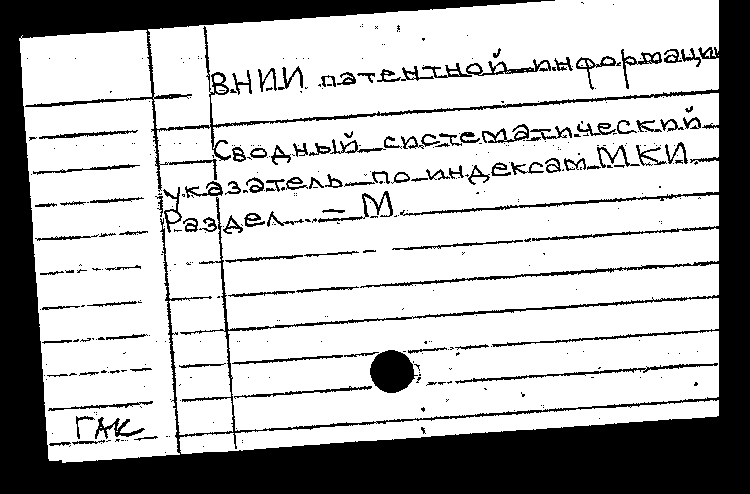 ВНИИ патентной информаци
Сводный систематический
указатель по индексам МКИ
Раздел — М
ГАК